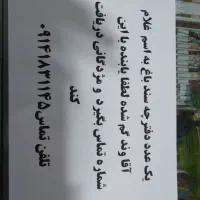 یک عدد دفترچه سند باغ به اسم غلام
آقاوند گم شده لطفا یابنده با این
شماره تماس بگیرد و مژدگانی دریافت
کند
تلفن تماس۰۹۱۴۱۸۳۱۱۴۵